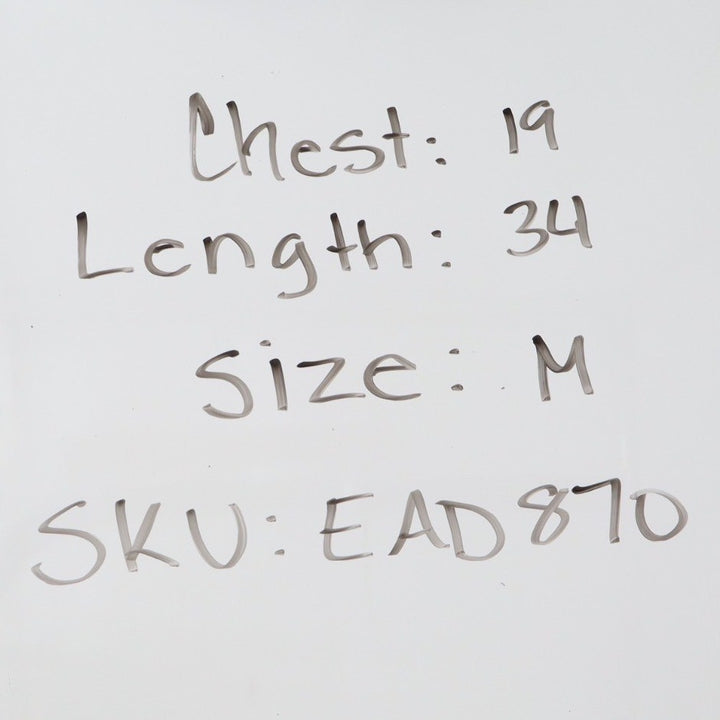 Chest: 19
Length: 34
Size: M
SKU: EAD870